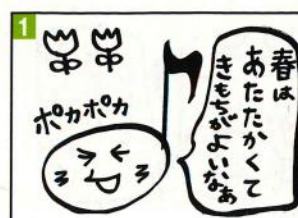 1
春は
あたたかくて
きもちがよいなぁ
ポカポカ